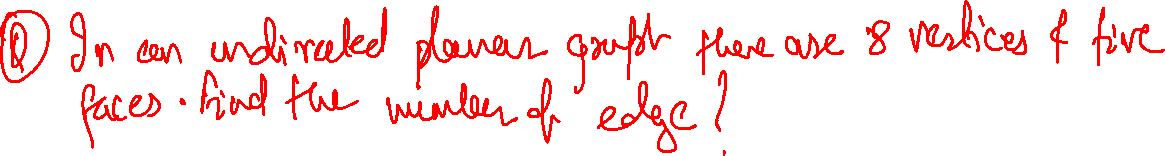 Q In an undirected planar graph there are 8 vertices & five
faces. Find the number of edge?